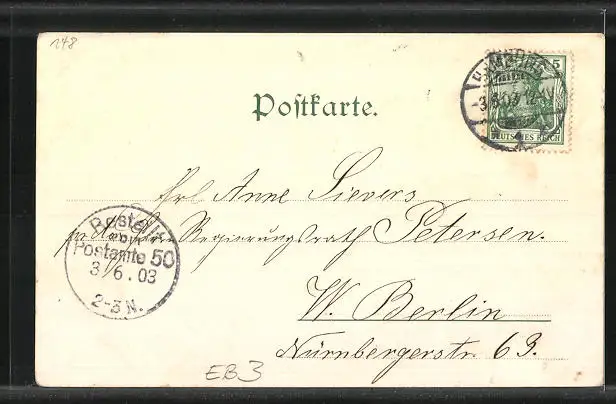 148
HAMBURG
-3.6.03.12-1V
1
5
DEUTSCHES REICH
Postkarte.
Frl. Anne Sievers
Regierungsrath Petersen.
Bestellt
vom
Postamte 50
3/6.03
2-3 N.
W. Berlin
Nürnbergerstr. 63.
EB3